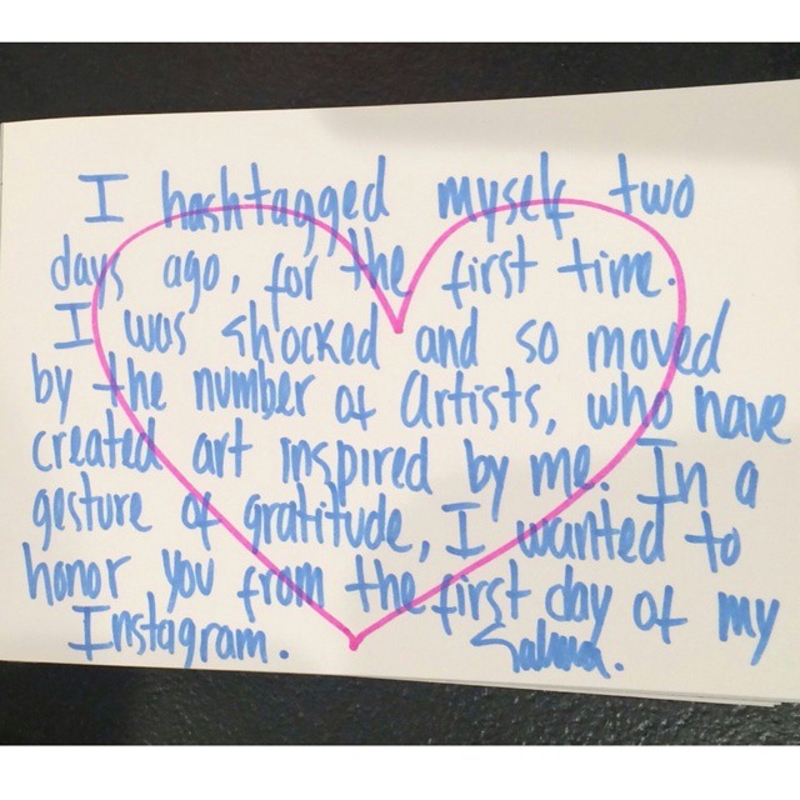 I hashtagged myself two
days ago, for the first time.
I was shocked and so moved
by the number of artists, who have
created art inspired by me. In a
gesture of gratitude, I wanted to
honor you from the first day of my
Instagram. Salma.